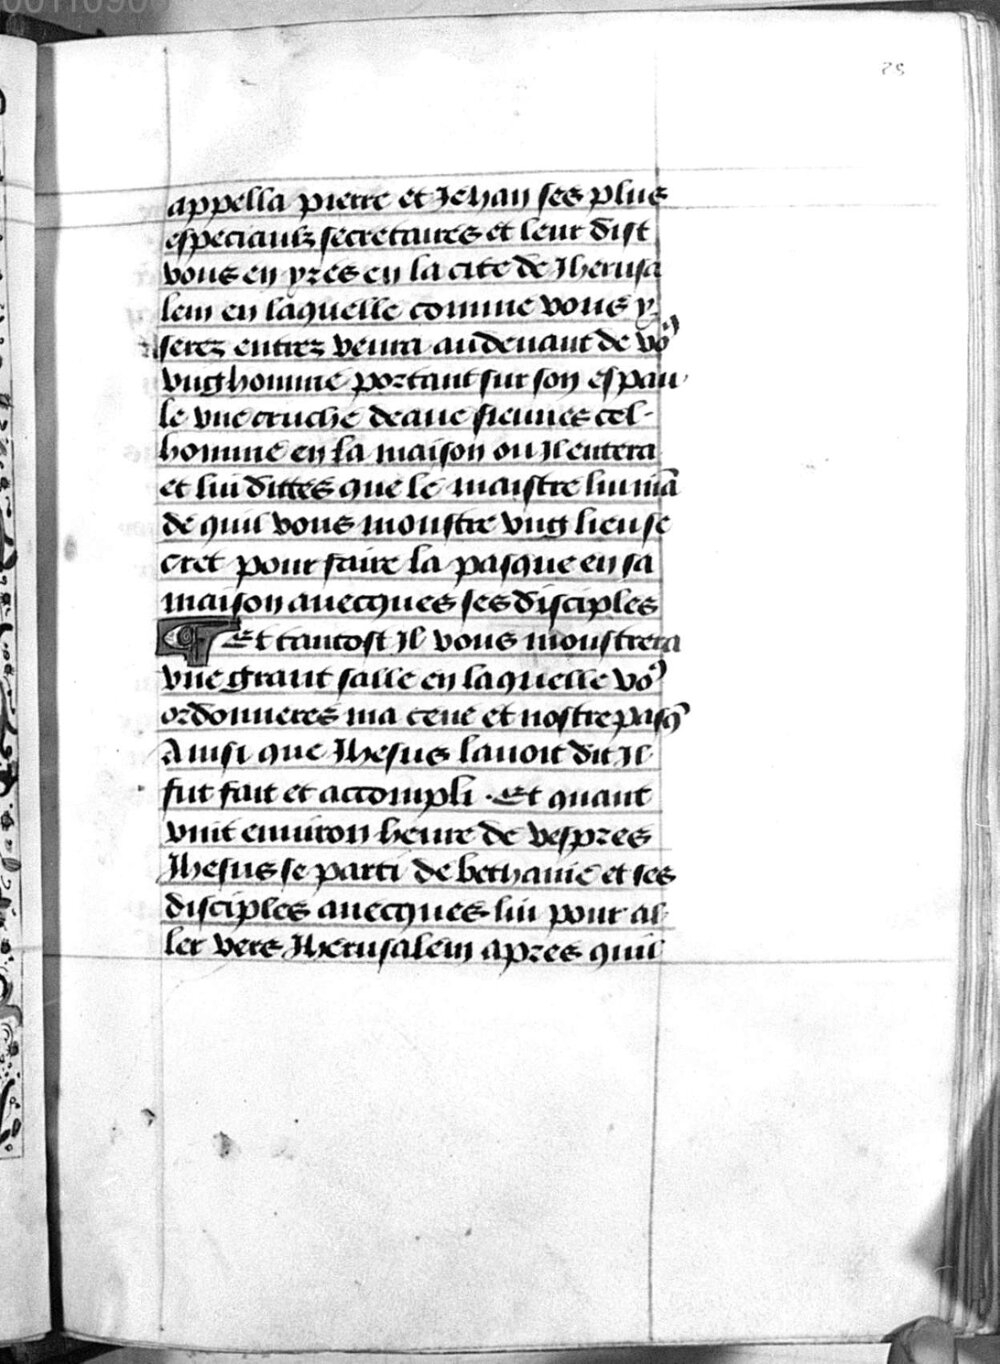 25
appella pierre et Jehan ses plus
especiaulz secretaires et leur dist
vous en yres en la cite de Jherusa
lem en laquelle comme vous y
serez entrez venra audeuant de vo⁹
vng homme portant sur son espau
le vne cruche deaue sieuues cel
homme en la maison ou Il entera
et lui dittes que le maistre lui mā
de quil vous monstre vng lieu se
cret pour faire la pasque en sa
maison auecques ses disciples
Et tantost Il vous monstrera
vne grant salle en laquelle vo⁹
ordonneres ma cene et nostre pasq̄
Ainsi que Jhesus lauoit dit Il
fut fait et accompli . Et quant
vint enuiron heure de vespres
Jhesus se parti de bethanie et ses
disciples auecques lui pour al
ler vers Jherusalem apres quil